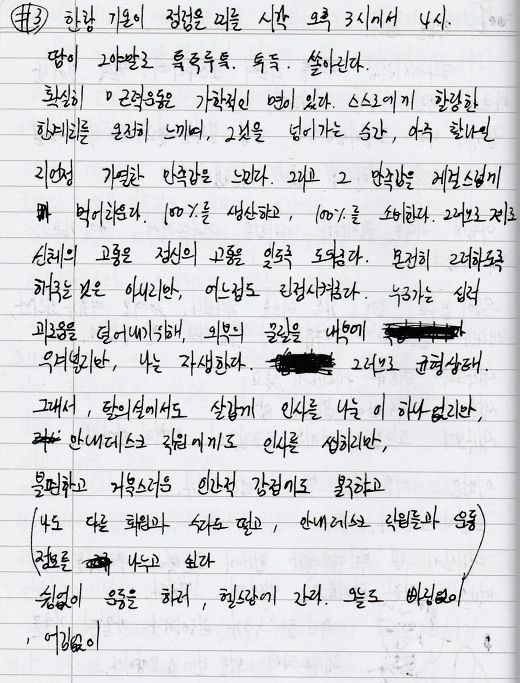 #3 한낮 기온이 정점을 찍를 시각 오후 3시에서 4시.
땀이 그야말로 툭툭루툭. 툭툭. 쏟아린다.
확실히 이 근력운동은 가학적인 면이 있다. 스스로에게 할당한
한계치를 온전히 느끼며, 그것을 넘어가는 순간, 아주 찰나일
지언정 가열찬 만족감을 느낀다. 그리고 그 만족감을 게걸스럽게
먹어치운다. 100%를 생산하고, 100%를 소비한다. 그러므로 제로
신체의 고통은 정신의 고통을 잊도록 도와준다. 온전히 그러하도록
해주는 것은 아니리만, 어느정도 진정시켜준다. 누군가는 심적
괴로움을 덜어내기위해, 외부의 물질을 내부에
우겨넣지만, 나는 자생한다. 그러므로 균형상태.
그래서, 탈의실에서도 살갑게 인사를 나눌 이 하나없지만,
안내데스크 직원에게도 인사를 씹히지만,
불편하고 거북스러운 인간적 감정에도 불구하고
(나도 다른 회원과 수다도 떨고, 안내데스크 직원들과 운동
정보를 나누고 싶다)
쉼없이 운동을 하러, 헬스장에 간다. 오늘도 빠짐없이
, 어김없이